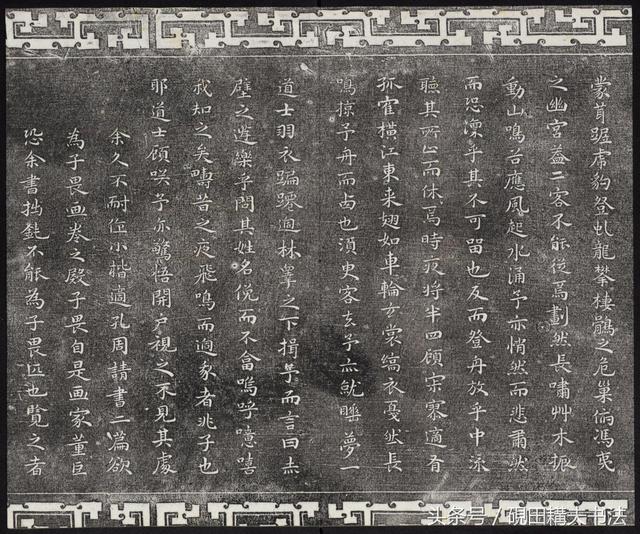 蒙茸踞虎豹登虬龍攀棲鶻之危巢俯馮夷
之幽宮蓋二客不能從焉劃然長嘯艸木振
動山鳴谷應風起水涌予亦悄然而悲肅然
而恐凜乎其不可留也反而登舟放乎中流
聽其所止而休焉時夜將半四顧寂寥適有
孤隺橫江東來翅如車輪玄裳縞衣戛然長
鳴掠予舟而西也須臾客去予亦就睡夢一
道士羽衣蹁躚過林皋之下揖予而言曰赤
壁之遊樂乎問其姓名俛而不答嗚呼噫嘻
我知之矣疇昔之夜飛鳴而過我者非子也
耶道士顧笑予亦驚悟開戶視之不見其處
余久不耐作小楷適孔周請書二篇欲
為子畏畫卷之殿子畏自是畫家董巨
恐余書拙鈍不能為子畏匹也覽之者
头条号/硯田耩夫书法